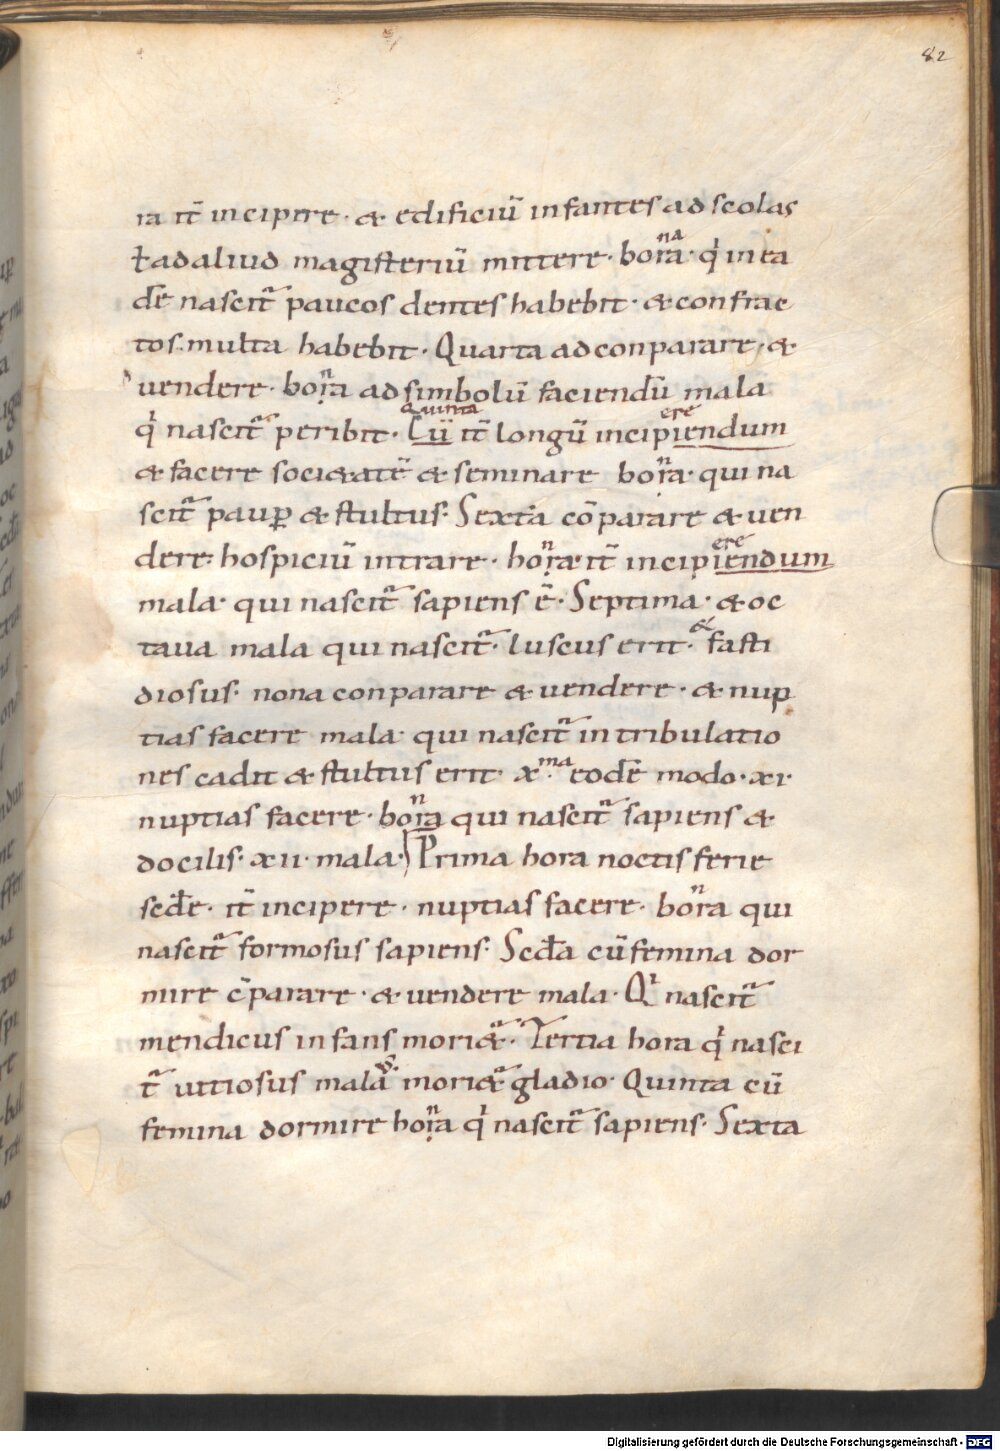 82
ia it̄ incipere · & edificiū infantes ad scolas
ł ad aliud magisteriū mittere · bonͣa · q̇ in ea
dē nascit᷑ paucos dentes habebit · & confrac
tos multa habebit · Quarta ad conparare · &
uendere · bonͬa ad simbolū faciendū mala
q̇ nascit᷑ peribit · Quinta Cū it̄ longū incipiendum ere
& facere soci&atē & seminare bonͬa · qui na
scit᷑ paup̄ & stultus · Sexta cōparare & uen
dere · hospiciū intrare · bonͬa · it̄ incipiendum ere
mala · qui nascit᷑ sapiens ē · Septima · & oc
taua mala qui nascit᷑ · luscus erit · & fasti
diosus · nona conparare & uendere · & nup
tias facere mala · qui nascit᷑ in tribulatio
nes cadit & stultus erit · xͫͣ · eodē modo · xi ·
nuptias facere · bonͬa qui nascit᷑ sapiens &
docilis · xii · mala · Prima hora noctis ferie
sedē · it̄ incipere · nuptias facere · bonͬa qui
nascit᷑ formosus sapiens · Seda cū femina dor
mire c̄parare · & uendere mala · Qͥ nascit᷑
mendicus infans mori&᷑ · Tertia hora q̇ nasci
t᷑ uitiosus mala mori&᷑ gladio · Quinta cū
femina dormire bonͬa q̇ nascit᷑ sapiens · Sexta
Digitalisierung gefördert durch die Deutsche Forschungsgemeinschaft - DFG